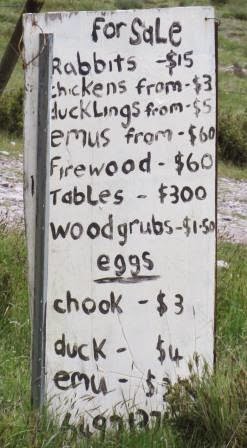 For Sale
Rabbits - $15
chickens from - $3
ducklings from - $5
emus from - $60
Firewood - $60
Tables - $300
Woodgrubs - $1.50
eggs
chook - $3
duck - $4
emu - $